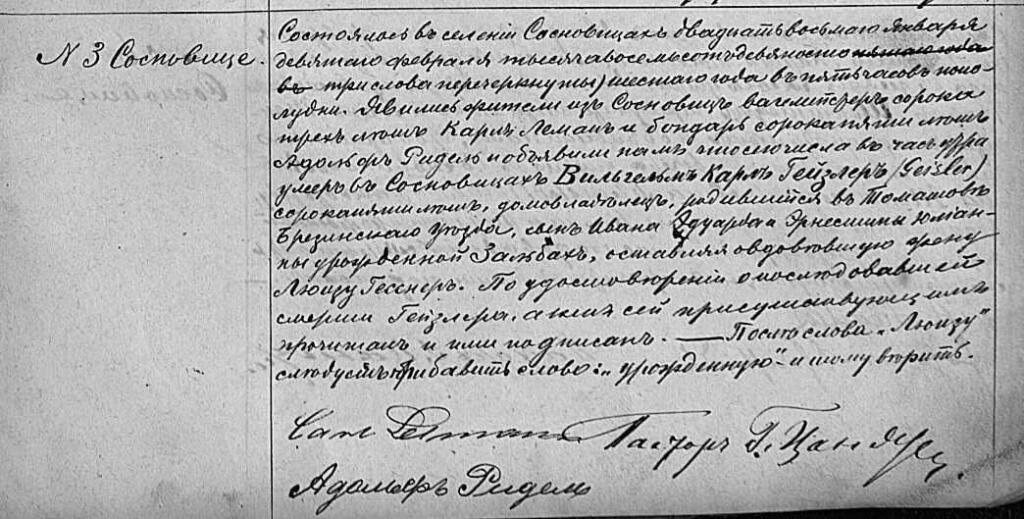 N 3 Сосновице.
Состоялось въ селеніи Сосновицахъ двадцать восьмаго Января
девятаго февраля тысяча восемьсотъ девяносто пятаго года
въ три слова перечеркнуты) шестаго года въ пять часовъ попо-
лудни. Явились жители изъ Сосновицъ вагмейстеръ сорока
трехъ лѣтъ Карлъ Леманъ и бондарь сорока пяти лѣтъ
Адольфъ Ридель и объявили намъ что сего числа въ часъ утра
умеръ въ Сосновицахъ Вильгельмъ Карлъ Гейзлеръ (Geisler)
сорока пяти лѣтъ, домовладѣлецъ, родившійся въ Томашовѣ
Брезинскаго уѣзда, сынъ Ивана Эдуарда и Эрнестины Юліан-
ны урожденной Зальбахъ, оставляя овдовѣвшую жену
Люизу Гесснеръ. По удостовѣреніи о послѣдовавшей
смерти Гейзлера, актъ сей присутствующимъ
прочитанъ и ими подписанъ. — Послѣ слова „Люизу"
слѣдуетъ прибавить слово: „урожденную" и тому вѣрить.
Carl Lemann Пасторъ Г.
Адольфъ Ридель